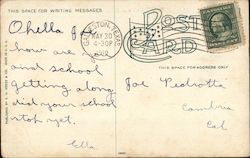 THIS SPACE FOR WRITING MESSAGES
Ohella Joe
how are you
and school
getting along
did your school
stoh yet.
Ella
TEXAS
MAY 30
4-30P
POST
CARD
THIS SPACE FOR ADDRESS ONLY
Joe Pedrotta
Cambria
Cal